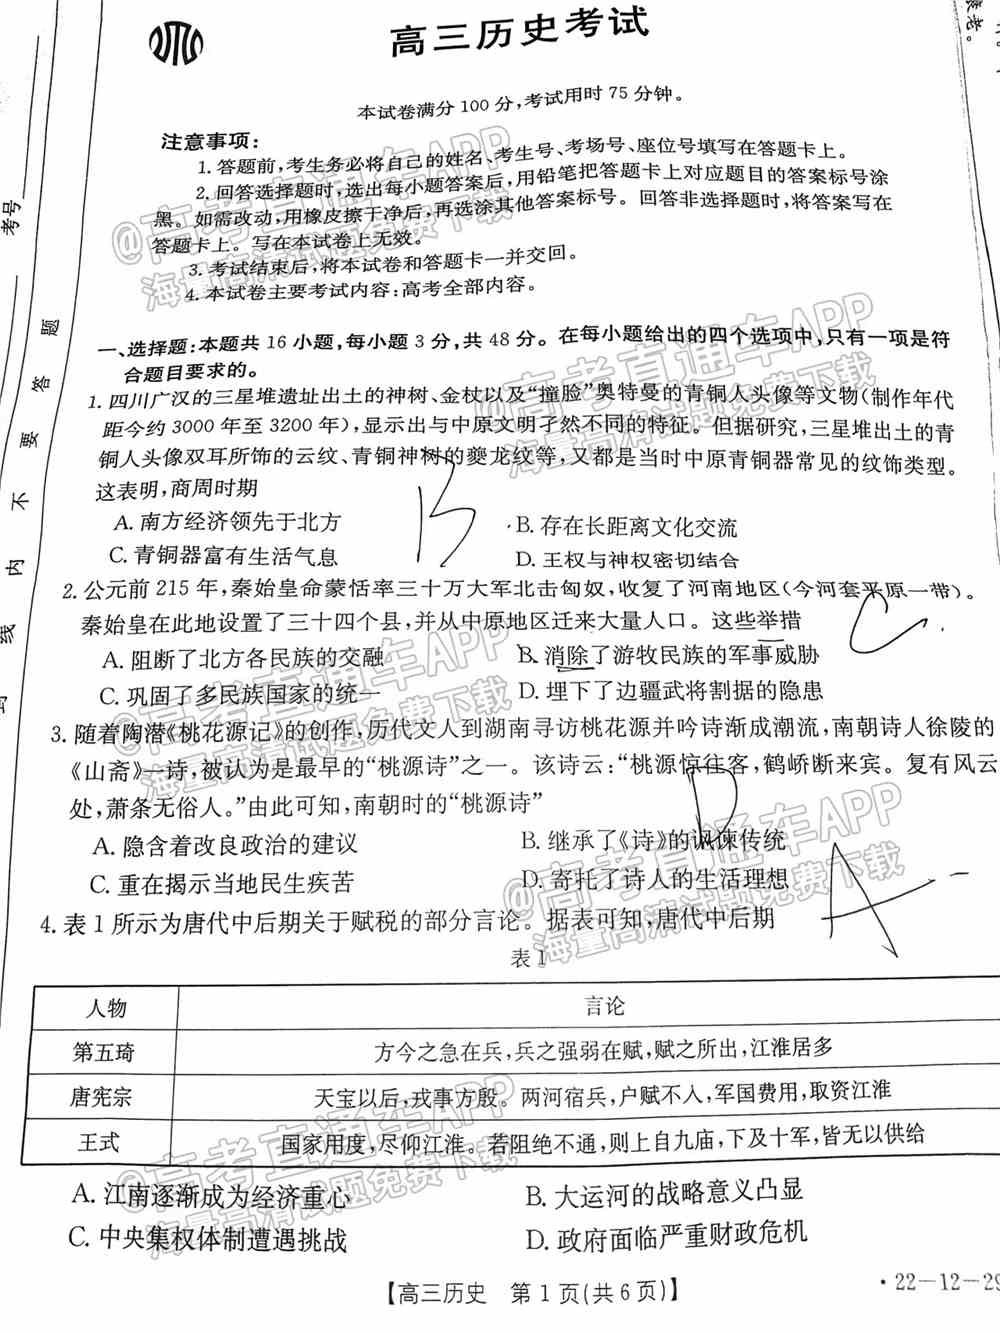 高三历史考试
本试卷满分100分,考试用时75分钟。
注意事项:
1.答题前,考生务必将自己的姓名、考生号、考场号、座位号填写在答题卡上。
2.回答选择题时,选出每小题答案后,用铅笔把答题卡上对应题目的答案标号涂
黑。如需改动,用橡皮擦干净后,再选涂其他答案标号。回答非选择题时,将答案写在
答题卡上。写在本试卷上无效。
3.考试结束后,将本试卷和答题卡一并交回。
4.本试卷主要考试内容:高考全部内容。
一、选择题:本题共16小题,每小题3分,共48分。在每小题给出的四个选项中,只有一项是符
合题目要求的。
1.四川广汉的三星堆遗址出土的神树、金杖以及“撞脸”奥特曼的青铜人头像等文物(制作年代
距今约3000年至3200年),显示出与中原文明孑然不同的特征。但据研究,三星堆出土的青
铜人头像双耳所饰的云纹、青铜神树的夔龙纹等,又都是当时中原青铜器常见的纹饰类型。
这表明,商周时期
A.南方经济领先于北方
B.存在长距离文化交流
C.青铜器富有生活气息
D.王权与神权密切结合
B
2.公元前215年,秦始皇命蒙恬率三十万大军北击匈奴,收复了河南地区(今河套平原一带)。
秦始皇在此地设置了三十四个县,并从中原地区迁来大量人口。这些举措
A.阻断了北方各民族的交融
B.消除了游牧民族的军事威胁
C.巩固了多民族国家的统一
D.埋下了边疆武将割据的隐患
C
3.随着陶潜《桃花源记》的创作,历代文人到湖南寻访桃花源并吟诗渐成潮流,南朝诗人徐陵的
《山斋》一诗,被认为是最早的“桃源诗”之一。该诗云:“桃源惊往客,鹤峤断来宾。复有风云
处,萧条无俗人。”由此可知,南朝时的“桃源诗”
A.隐含着改良政治的建议
B.继承了《诗》的讽谏传统
C.重在揭示当地民生疾苦
D.寄托了诗人的生活理想
D
4.表1所示为唐代中后期关于赋税的部分言论。据表可知,唐代中后期
A
表1
人物 言论
第五琦 方今之急在兵,兵之强弱在赋,赋之所出,江淮居多
唐宪宗 天宝以后,戎事方殷。两河宿兵,户赋不入,军国费用,取资江淮
王式 国家用度,尽仰江淮。若阻绝不通,则上自九庙,下及十军,皆无以供给
A.江南逐渐成为经济重心
B.大运河的战略意义凸显
C.中央集权体制遭遇挑战
D.政府面临严重财政危机
【高三历史 第1页(共6页)】
·22-12-29
考号
题
答
要
不
内
线
@高考直通车APP
海量高清试题免费下载
@高考直通车APP
海量高清试题免费下载
@高考直通车APP
海量高清试题免费下载
@高考直通车APP
海量高清试题免费下载
@高考直通车APP
海量高清试题免费下载